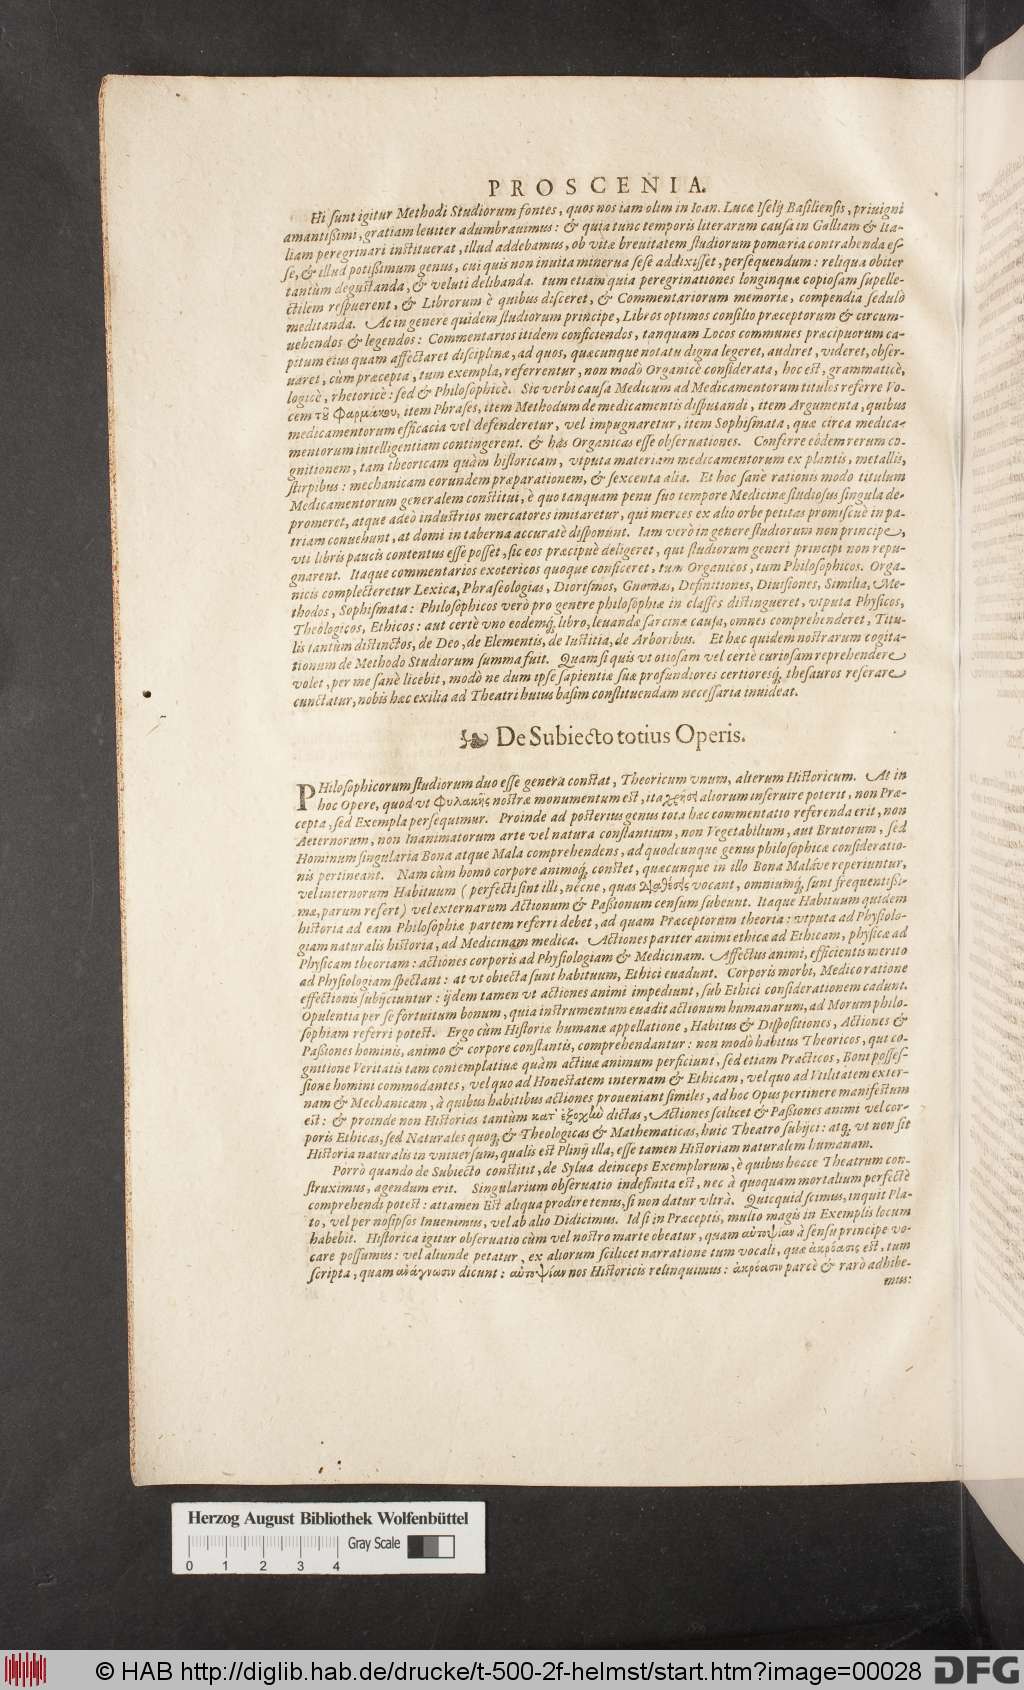 PROSCENIA.
Hi sunt igitur Methodi Studiorum fontes, quos nos iam olim in Ioan. Lucæ Iselij Basiliensis, priuigni
amantißimi, gratiam leuiter adumbrauimus: & quia tunc temporis literarum causa in Galliam & Ita-
liam peregrinari instituerat, illud addebamus, ob vitæ breuitatem studiorum pomœria contrahenda es-
se, & illud potißimum genus, cui quis non inuita minerua sese addixisset, persequendum: reliqua obiter
tantùm degustanda, & veluti delibanda. tum etiam quia peregrinationes longinquæ copiosam supelle-
ctilem respuerent, & Librorum è quibus disceret, & Commentariorum memoriæ, compendia sedulò
meditanda. Ac in genere quidem studiorum principe, Libros optimos consilio præceptorum & circum-
uehendos & legendos: Commentarios itidem conficiendos, tanquam Locos communes præcipuorum ca-
pitum eius quam affectaret disciplinæ, ad quos, quæcunque notatu digna legeret, audiret, videret, obser-
uaret, cùm præcepta, tum exempla, referrentur, non modò Organicè considerata, hoc est, grammaticè,
logicè, rhetoricè: sed & Philosophicè. Sic verbi causa Medicum ad Medicamentorum titulos referre Vo-
cem τȣ͂ Φαρμάκου, item Phrases, item Methodum de medicamentis disputandi, item Argumenta, quibus
medicamentorum efficacia vel defenderetur, vel impugnaretur, item Sophismata, quæ circa medica-
mentorum intelligentiam contingerent. & has Organicas esse obseruationes. Conferre eòdem rerum co-
gnitionem, tam theoricam quàm historicam, vtputa materiam medicamentorum ex plantis, metallis,
stirpibus: mechanicam eorundem præparationem, & sexcenta alia. Et hoc sanè rationis modo titulum
Medicamentorum generalem constitui, è quo tanquam penu suo tempore Medicinæ studiosus singula de-
promeret, atque adeò industrios mercatores imitaretur, qui merces ex alto orbe petitas promiscuè in pa-
triam conuehunt, at domi in taberna accuratè disponunt. Iam verò in genere studiorum non principe,
vti libris paucis contentus esse posset, sic eos præcipuè deligeret, qui studiorum generi principi non repu-
gnarent. Itaque commentarios exotericos quoque conficeret, tum Organicos, tum Philosophicos. Orga-
nicis complecteretur Lexica, Phraseologias, Diorismos, Gnomas, Definitiones, Diuisiones, Similia, Me-
thodos, Sophismata: Philosophicos verò pro genere philosophiæ in classes distingueret, vtputa Physicos,
Theologicos, Ethicos: aut certè vno eodemq́ libro, leuandæ sarcinæ causa, omnes comprehenderet, Titu-
lis tantùm distinctos, de Deo, de Elementis, de Iustitia, de Arboribus. Et hæc quidem nostrarum cogita-
tionum de Methodo Studiorum summa fuit. Quam si quis vt otiosam vel certè curiosam reprehendere
volet, per me sanè licebit, modò ne dum ipse sapientiæ suæ profundiores certioresq́ thesauros reserare
cunctatur, nobis hæc exilia ad Theatri huius basim constituendam necessaria inuideat.
De Subiecto totius Operis.
PHilosophicorum studiorum duo esse genera constat, Theoricum vnum, alterum Historicum. At in
hoc Opere, quod vt Φυλακῆς nostræ monumentum est, ita χρήσι aliorum inseruire poterit, non Præ-
cepta, sed Exempla persequimur. Proinde ad posterius genus tota hæc commentatio referenda erit, non
Aeternorum, non Inanimatorum arte vel natura constantium, non Vegetabilium, aut Brutorum, sed
Hominum singularia Bona atque Mala comprehendens, ad quodcunque genus philosophicæ consideratio-
nis pertineant. Nam cùm homo corpore animoq́ constet, quæcunque in illo Bona Maláve reperiuntur,
vel internorum Habituum (perfecti sint illi, nécne, quas vocant, omniumq́ sunt frequentißi-
mæ, parum refert) vel externarum Actionum & Paßionum censum subeunt. Itaque Habituum quidem
historia ad eam Philosophiæ partem referri debet, ad quam Præceptorum theoria: vtputa ad Physiolo-
giam naturalis historia, ad Medicinam medica. Actiones pariter animi ethicæ ad Ethicam, physicæ ad
Physicam theoriam: actiones corporis ad Physiologiam & Medicinam. Affectus animi, efficientis merito
ad Physiologiam spectant: at vt obiecta sunt habituum, Ethici euadunt. Corporis morbi, Medico ratione
effectionis subijciuntur: ijdem tamen vt actiones animi impediunt, sub Ethici considerationem cadunt.
Opulentia per se fortuitum bonum, quia instrumentum euadit actionum humanarum, ad Morum philo-
sophiam referri potest. Ergo cùm Historiæ humanæ appellatione, Habitus & Dispositiones, Actiones &
Paßiones hominis, animo & corpore constantis, comprehendantur: non modò habitus Theoricos, qui co-
gnitione Veritatis tam contemplatiuæ quàm actiuæ animum perficiunt, sed etiam Practicos, Boni posses-
sione homini commodantes, vel quo ad Honestatem internam & Ethicam, vel quo ad Vtilitatem exter-
nam & Mechanicam, à quibus habitibus actiones proueniant similes, ad hoc Opus pertinere manifestum
est: & proinde non Historias tantùm κατ' ἐξοχὼ dictas, Actiones scilicet & Paßiones animi vel cor-
poris Ethicas, sed Naturales quoq́, & Theologicas & Mathematicas, huic Theatro subijci: atq́, vt non sit
Historia naturalis in vniuersum, qualis est Plinij illa, esse tamen Historiam naturalem humanam.
Porrò quando de Subiecto constitit, de Sylua deinceps Exemplorum, è quibus hocce Theatrum con-
struximus, agendum erit. Singularium obseruatio indefinita est, nec à quoquam mortalium perfectè
comprehendi potest: attamen Est aliqua prodire tenus, si non datur vltrà. Quicquid scimus, inquit Pla-
to, vel per nosipsos Inuenimus, vel ab alio Didicimus. Id si in Præceptis, multo magis in Exemplis locum
habebit. Historica igitur obseruatio cùm vel nostro marte obeatur, quam αὐτοψίαν à sensu principe vo-
care possumus: vel aliunde petatur, ex aliorum scilicet narratione tum vocali, quæ ἀκρόασις est, tum
scripta, quam ἀνάγνωσιν dicunt: αὐτοψίαν nos Historicis relinquimus: ἀκρόασιν parcè & rarò adhibe-
mus:
Herzog August Bibliothek Wolfenbüttel
Gray Scale
0 1 2 3 4
© HAB http://diglib.hab.de/drucke/t-500-2f-helmst/start.htm?image=00028 DFG